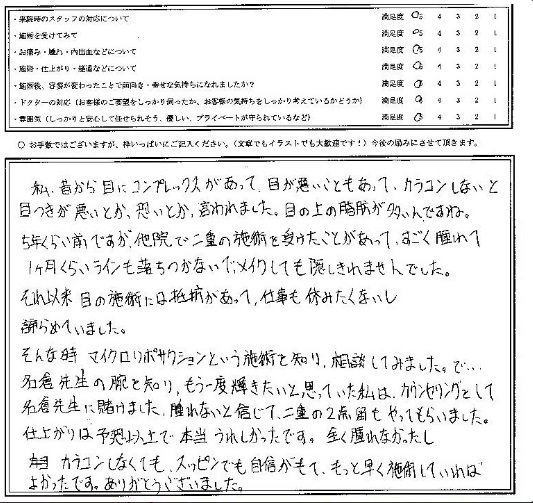 ・来院時のスタッフの対応について 満足度 5 4 3 2 1
・施術を受けてみて 満足度 5 4 3 2 1
・お痛み・腫れ・内出血などについて 満足度 5 4 3 2 1
・施術・仕上がり・経過などについて 満足度 5 4 3 2 1
・施術後、容姿が変わったことで前向き・幸せな気持ちになれましたか? 満足度 5 4 3 2 1
・ドクターの対応(お客様のご要望をしっかり伺ったか、お客様の気持ちをしっかり考えているかどうか) 満足度 5 4 3 2 1
・雰囲気(しっかりと安心して任せられそう、優しい、プライベートが守られているなど) 満足度 5 4 3 2 1
○ お手数ではございますが、枠いっぱいにご記入ください。(文章でもイラストでも大歓迎です!)今後の励みにさせて頂きます。
私、昔から目にコンプレックスがあって、目が悪いこともあって、カラコンしないと
目つきが悪いとか、恐いとか、言われました。目の上の脂肪が多いんですね。
5年くらい前ですが、他院で二重の施術を受けたことがあって、すごく腫れて
1ヶ月くらいラインも落ちつかないでメイクしても隠しきれませんでした。
それ以来 目の施術には抵抗があって、仕事も休みたくないし
諦らめていました。
そんな時 マイクロリポサクションという施術を知り、相談してみました。で…
名倉先生の腕を知り、もう一度輝きたいと思っていた私は、カウンセリングをして
名倉先生に賭けました。腫れないと信じて、二重の2点留もやってもらいました。
仕上がりは予想以上で本当うれしかったです。全く腫れなかったし
カラコンしなくても、スッピンでも自信がもて、もっと早く施術していれば
よかったです。ありがとうございました。